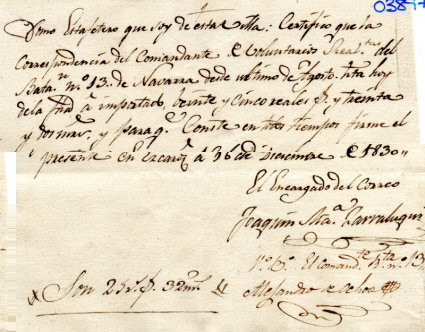 0381
Como Estafetero que soy de esta Villa: Certifico que la
Correspondencia del Comandante de Voluntarios Real.tas del
Bata.n nº 13. de Navarra desde ultimo de Agosto hta hoy
de la fha a importado, beinte y cinco reales f. y treinta
y dos mrs, y para q.e Conste en todos tiempos firmo el
presente en Ezcaroz á 36 de Diciembre de 1830,,
El Encargado del Correo
Joaquin Sta.a Zarraluqui
Vº Bº El Comand.te nº 13
Alejandro de Ochoa
Son 25 r.s f. 32 m.s